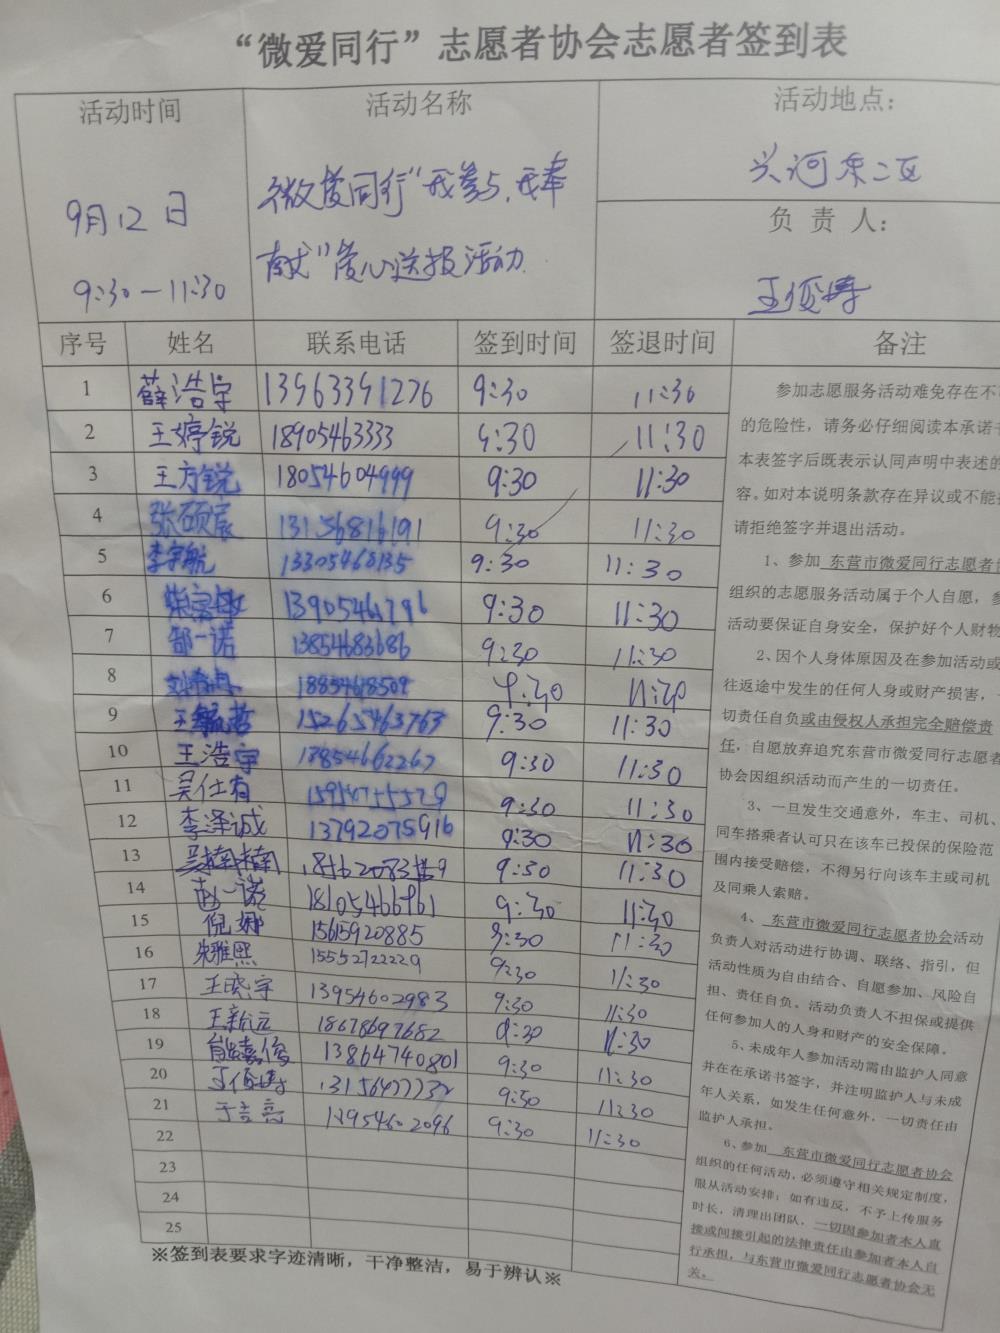 “微爱同行”志愿者协会志愿者签到表
活动时间
9月12日
9:30—11:30
活动名称
微爱同行“我参与,我奉
献”爱心送报活动
活动地点：
兴河东二区
负 责 人：
序号 姓名 联系电话 签到时间 签退时间 备注
1 薛浩宇 13963391276 9:30 11:30
2 王婷锐 18905463333 9:30 11:30
3 王方锐 18054604999 9:30 11:30
4 张硕宸 13156816191 9:30 11:30
5 李宇航 13305468135 9:30 11:30
6 9:30 11:30
7 郜一诺 13854683686 9:30 11:30
8 18854618509 9:30 11:30
9 15265463763 9:30 11:30
10 王浩宇 13854662267 9:30 11:30
11 吴仕有 9:30 11:30
12 李泽诚 13792075916 9:30 11:30
13 吴楠楠 9:30 11:30
14 赵一诺 9:30 11:30
15 倪娜 15615920885 9:30 11:30
16 朱雅熙 15552722229 9:30 11:30
17 王晓宇 13954602983 9:30 11:30
18 王新元 18678697682 9:30 11:30
19 13864740801 9:30 11:30
20 9:30 11:30
21 于吉亮 9:30 11:30
22
23
24
25
参加志愿服务活动难免存在不
的危险性，请务必仔细阅读本承诺书
本表签字后既表示认同声明中表述的
容。如对本说明条款存在异议或不能
请拒绝签字并退出活动。
1、参加 东营市微爱同行志愿者
组织的志愿服务活动属于个人自愿，参
活动要保证自身安全，保护好个人财物
2、因个人身体原因及在参加活动或
往返途中发生的任何人身或财产损害，
切责任自负或由侵权人承担完全赔偿责
任，自愿放弃追究东营市微爱同行志愿者
协会因组织活动而产生的一切责任。
3、一旦发生交通意外，车主、司机、
同车搭乘者认可只在该车已投保的保险范
围内接受赔偿，不得另行向该车主或司机
及同乘人索赔。
4、 东营市微爱同行志愿者协会活动
负责人对活动进行协调、联络、指引，但
活动性质为自由结合、自愿参加、风险自
担、责任自负、活动负责人不担保或提供
任何参加人的人身和财产的安全保障。
5、未成年人参加活动需由监护人同意
并在在承诺书签字，并注明监护人与未成
年人关系，如发生任何意外，一切责任由
监护人承担。
6、参加 东营市微爱同行志愿者协会
组织的任何活动，必须遵守相关规定制度，
服从活动安排；如有违反，不予上传服务
时长，清理出团队，一切因参加者本人直
接或间接引起的法律责任由参加者本人自
行承担，与东营市微爱同行志愿者协会无
关。
※签到表要求字迹清晰，干净整洁，易于辨认※